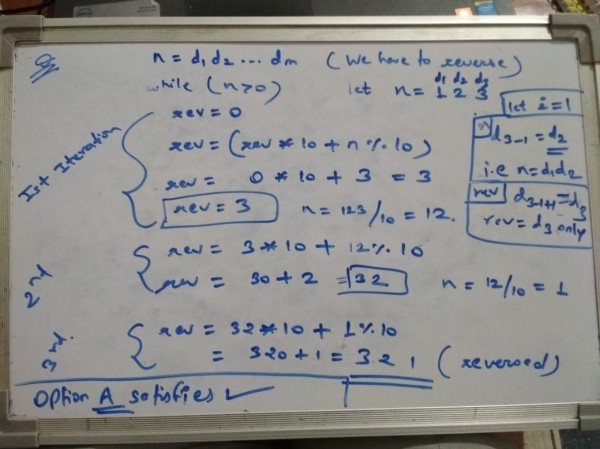 n = d₁d₂ ... dm (We have to reverse)
while (n>0) let n = 1 2 3
d₁ d₂ d₃
let i=1
Ist Iteration
rev = 0
rev = (rev * 10 + n % 10)
rev = 0 * 10 + 3 = 3
rev = 3 n = 123/10 = 12.
n
d₃₋₁ = d₂
i.e n = d₁d₂
rev
d₃₋₁₊₁ = d₃
rev = d₃ only
2nd
rev = 3*10 + 12% 10
rev = 30 + 2 = 32 n = 12/10 = 1
3rd.
rev = 32*10 + 1%10
= 320+1 = 321 (reversed)
Option A satisfies ✓